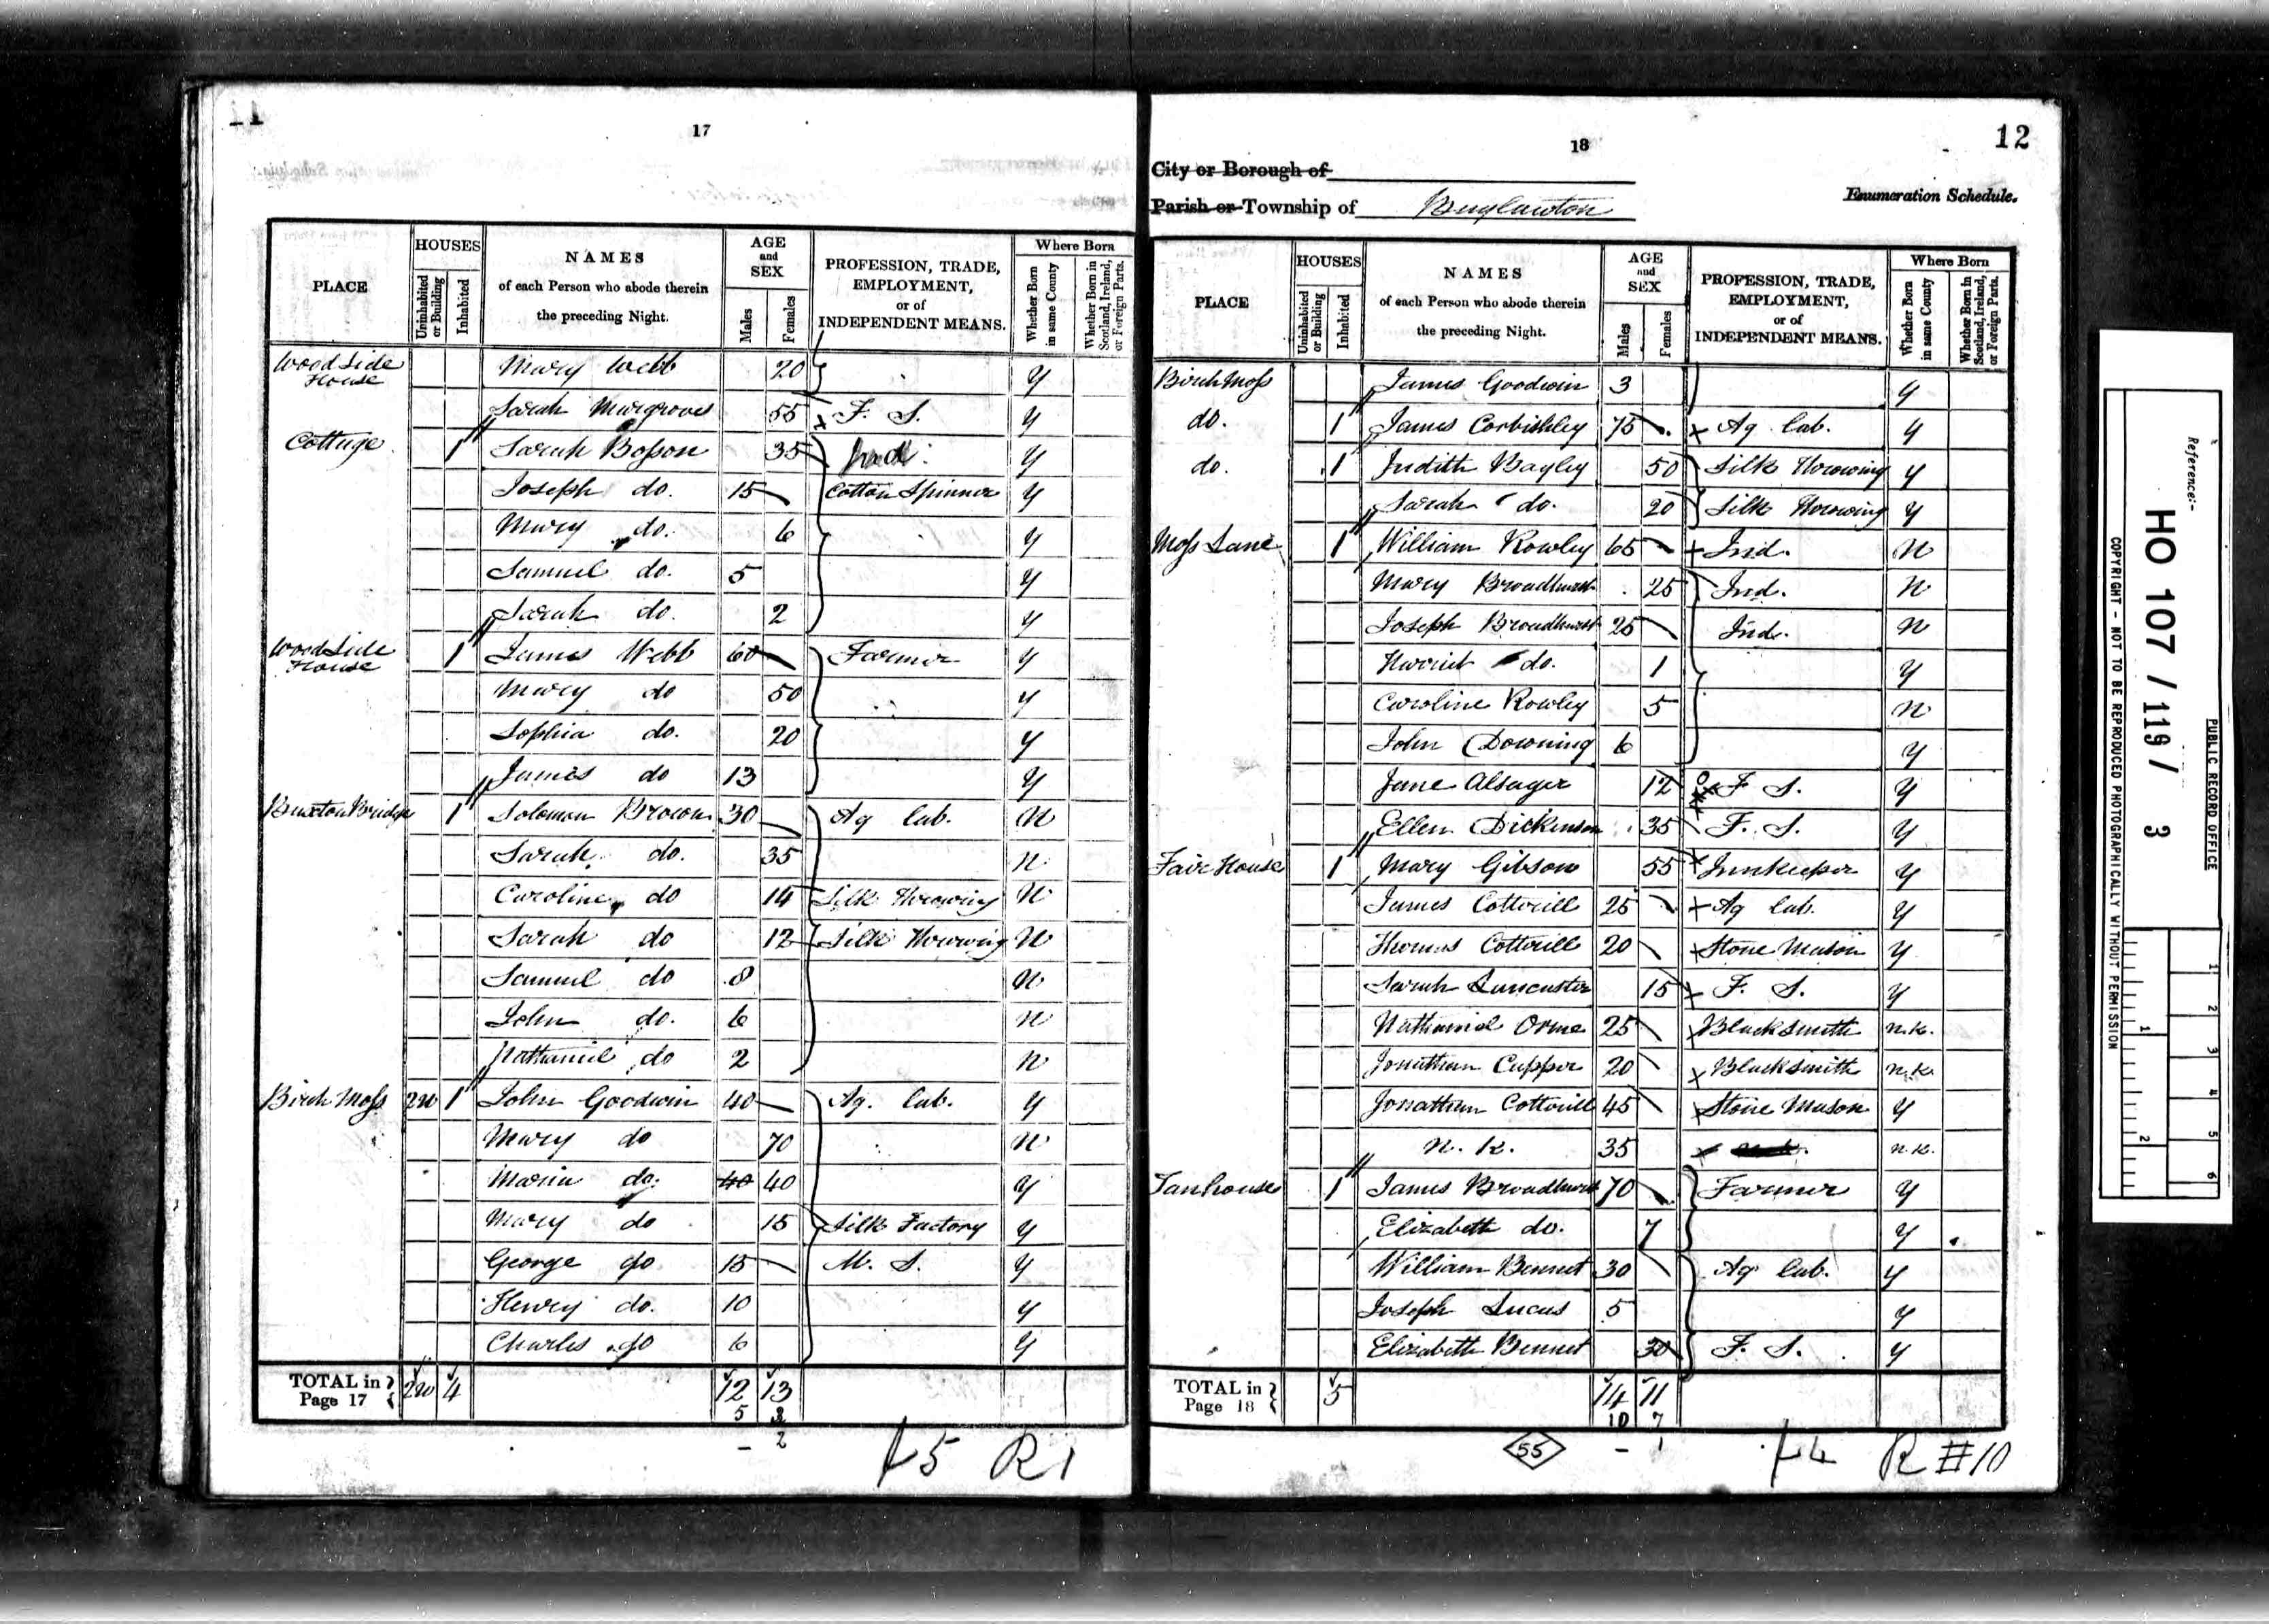 11
17
PLACE
HOUSES
Uninhabited or Building
Inhabited
NAMES
of each Person who abode therein
the preceding Night.
AGE
and
SEX
Males
Females
PROFESSION, TRADE,
EMPLOYMENT,
or of
INDEPENDENT MEANS.
Where Born
Whether Born in same County
Whether Born in Scotland, Ireland, or Foreign Parts.
Wood Side House Mary Webb 20 y
Sarah 55 F. S. y
Cottage 1 Sarah Bosson 35 Ind. y
Joseph do. 15 Cotton Spinner y
Mary do. 6 y
Samuel do. 5 y
Sarah do. 2 y
Wood Side House 1 James Webb 60 Farmer y
Mary do 50 y
Sophia do. 20 y
James do 13 y
Buxton Bridge 1 Solomon Brown 30 Ag Lab. N
Sarah do. 35 N
Caroline do 14 Silk Throwing N
Sarah do 12 Silk Throwing N
Samuel do 8 N
John do. 6 N
Nathaniel do 2 N
Birch Moss 2 1 John Goodwin 40 Ag. Lab. y
Mary do 70 N
Maria do. 40 40 y
Mary do 15 Silk Factory y
George do 15 M. S. y
Henry do. 10 y
Charles do 6 y
TOTAL in Page 17 4 12 13
5 3
– 2
5 R 1
12
18
City or Borough of
Parish or Township of Buglawton
Enumeration Schedule.
PLACE
HOUSES
Uninhabited or Building
Inhabited
NAMES
of each Person who abode therein
the preceding Night.
AGE
and
SEX
Males
Females
PROFESSION, TRADE,
EMPLOYMENT,
or of
INDEPENDENT MEANS.
Where Born
Whether Born in same County
Whether Born in Scotland, Ireland, or Foreign Parts.
Birch Moss James Goodwin 3 y
do. 1 James Corbishley 75 Ag Lab. y
do. 1 Judith Bayley 50 Silk Throwing y
Sarah do. 20 Silk Throwing y
Moss Lane 1 William Rowley 65 Ind. N
Mary Broadhurst 25 Ind. N
Joseph Broadhurst 25 Ind. N
Harriet do. 1 y
Caroline Rowley 5 N
John Downing 6 y
Jane Alsager 12 F S. y
Ellen Dickinson 35 F. S. y
Fair House 1 Mary Gibson 55 Innkeeper y
James Cotterill 25 Ag Lab. y
Thomas Cotterill 20 Stone Mason y
Sarah Lancaster 15 F. S. y
Nathaniel Orme 25 Blacksmith n.k.
Jonathan Cupper 20 Blacksmith n.k.
Jonathan Cotterill 45 Stone Mason y
n. k. 35 n.k.
Tanhouse 1 James Broadhurst 70 Farmer y
Elizabeth do. 7 y
William Bennet 30 Ag Lab. y
Joseph Lucas 5 y
Elizabeth Bennet 30 F. S. y
TOTAL in Page 18 5 14 11
10 7
55 – 1
R # 10
Reference:-
HO 107 / 119 / 3
PUBLIC RECORD OFFICE
COPYRIGHT - NOT TO BE REPRODUCED PHOTOGRAPHICALLY WITHOUT PERMISSION
1 2 3 4 5 6
1 2